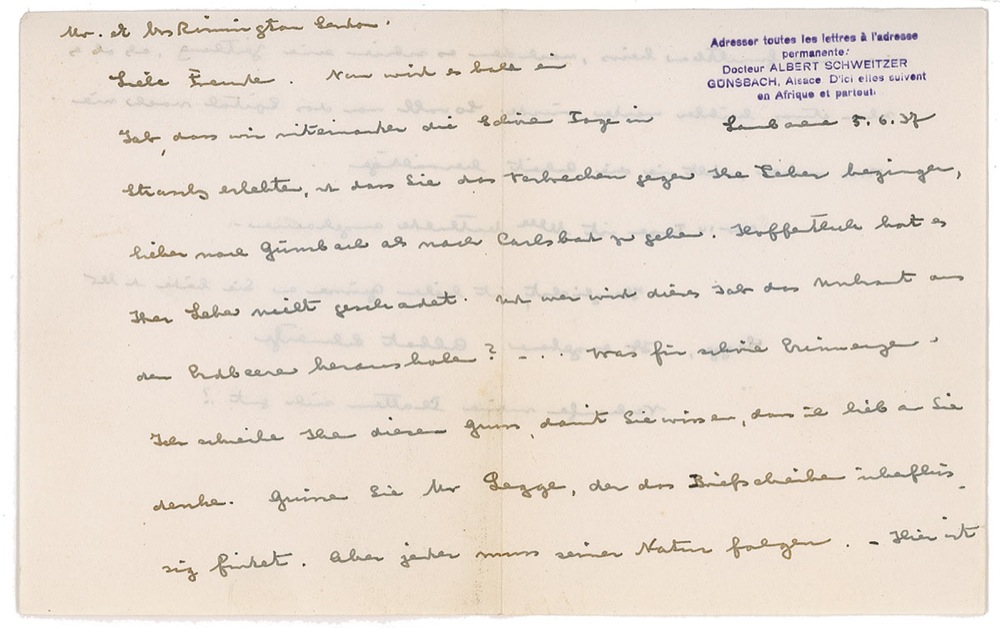 Mr. & Mrs Rimington London.
Adresser toutes les lettres à l'adresse
permanente:
Docteur ALBERT SCHWEITZER
GÜNSBACH, Alsace. D'ici elles suivent
en Afrique et partout.
Liebe Freunde. Nun wird es bald ein
Lambarene 5.6.37
Jahr, dass wir miteinander die schöne Tage in
Strassbg erlebten, u dass Sie das Verbrechen gegen Ihre Leber begingen,
lieber nach Günsbach als nach Carlsbad zu gehen. Hoffentlich hat es
Ihrer Leber nicht geschadet. Und wer wird dieses Jahr das Unkraut aus
den Erdbeeren herausholen? - . . . Was für schöne Erinnerungen.
Ich schreibe Ihnen diesen Gruss, damit Sie wissen, dass ich lieb an Sie
denke. Grüssen Sie Mr Legge, der das Briefschreiben überflüs-
sig findet. Aber jeder muss seiner Natur folgen. - Hier ist